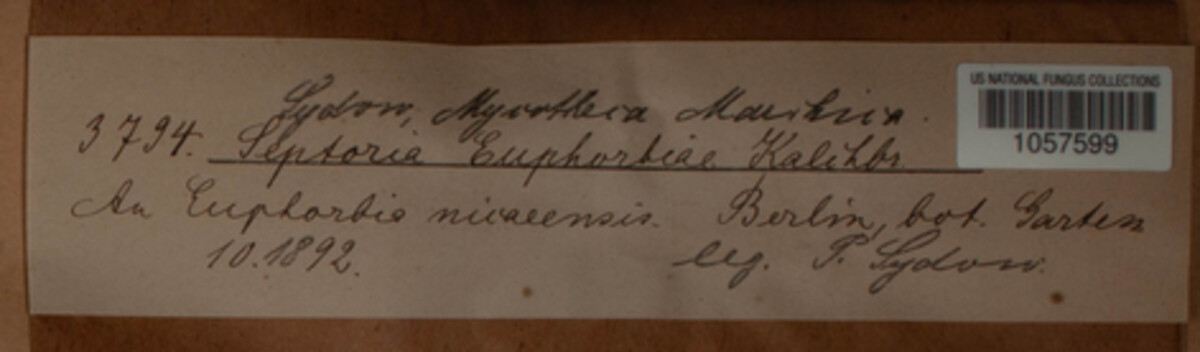 Sydow, Mycotheca Marchica.
3794. Septoria Euphorbiae Kalchbr.
An Euphorbia nicaeensis. Berlin, bot. Garten
10.1892. leg. P. Sydow.
US NATIONAL FUNGUS COLLECTIONS
1057599